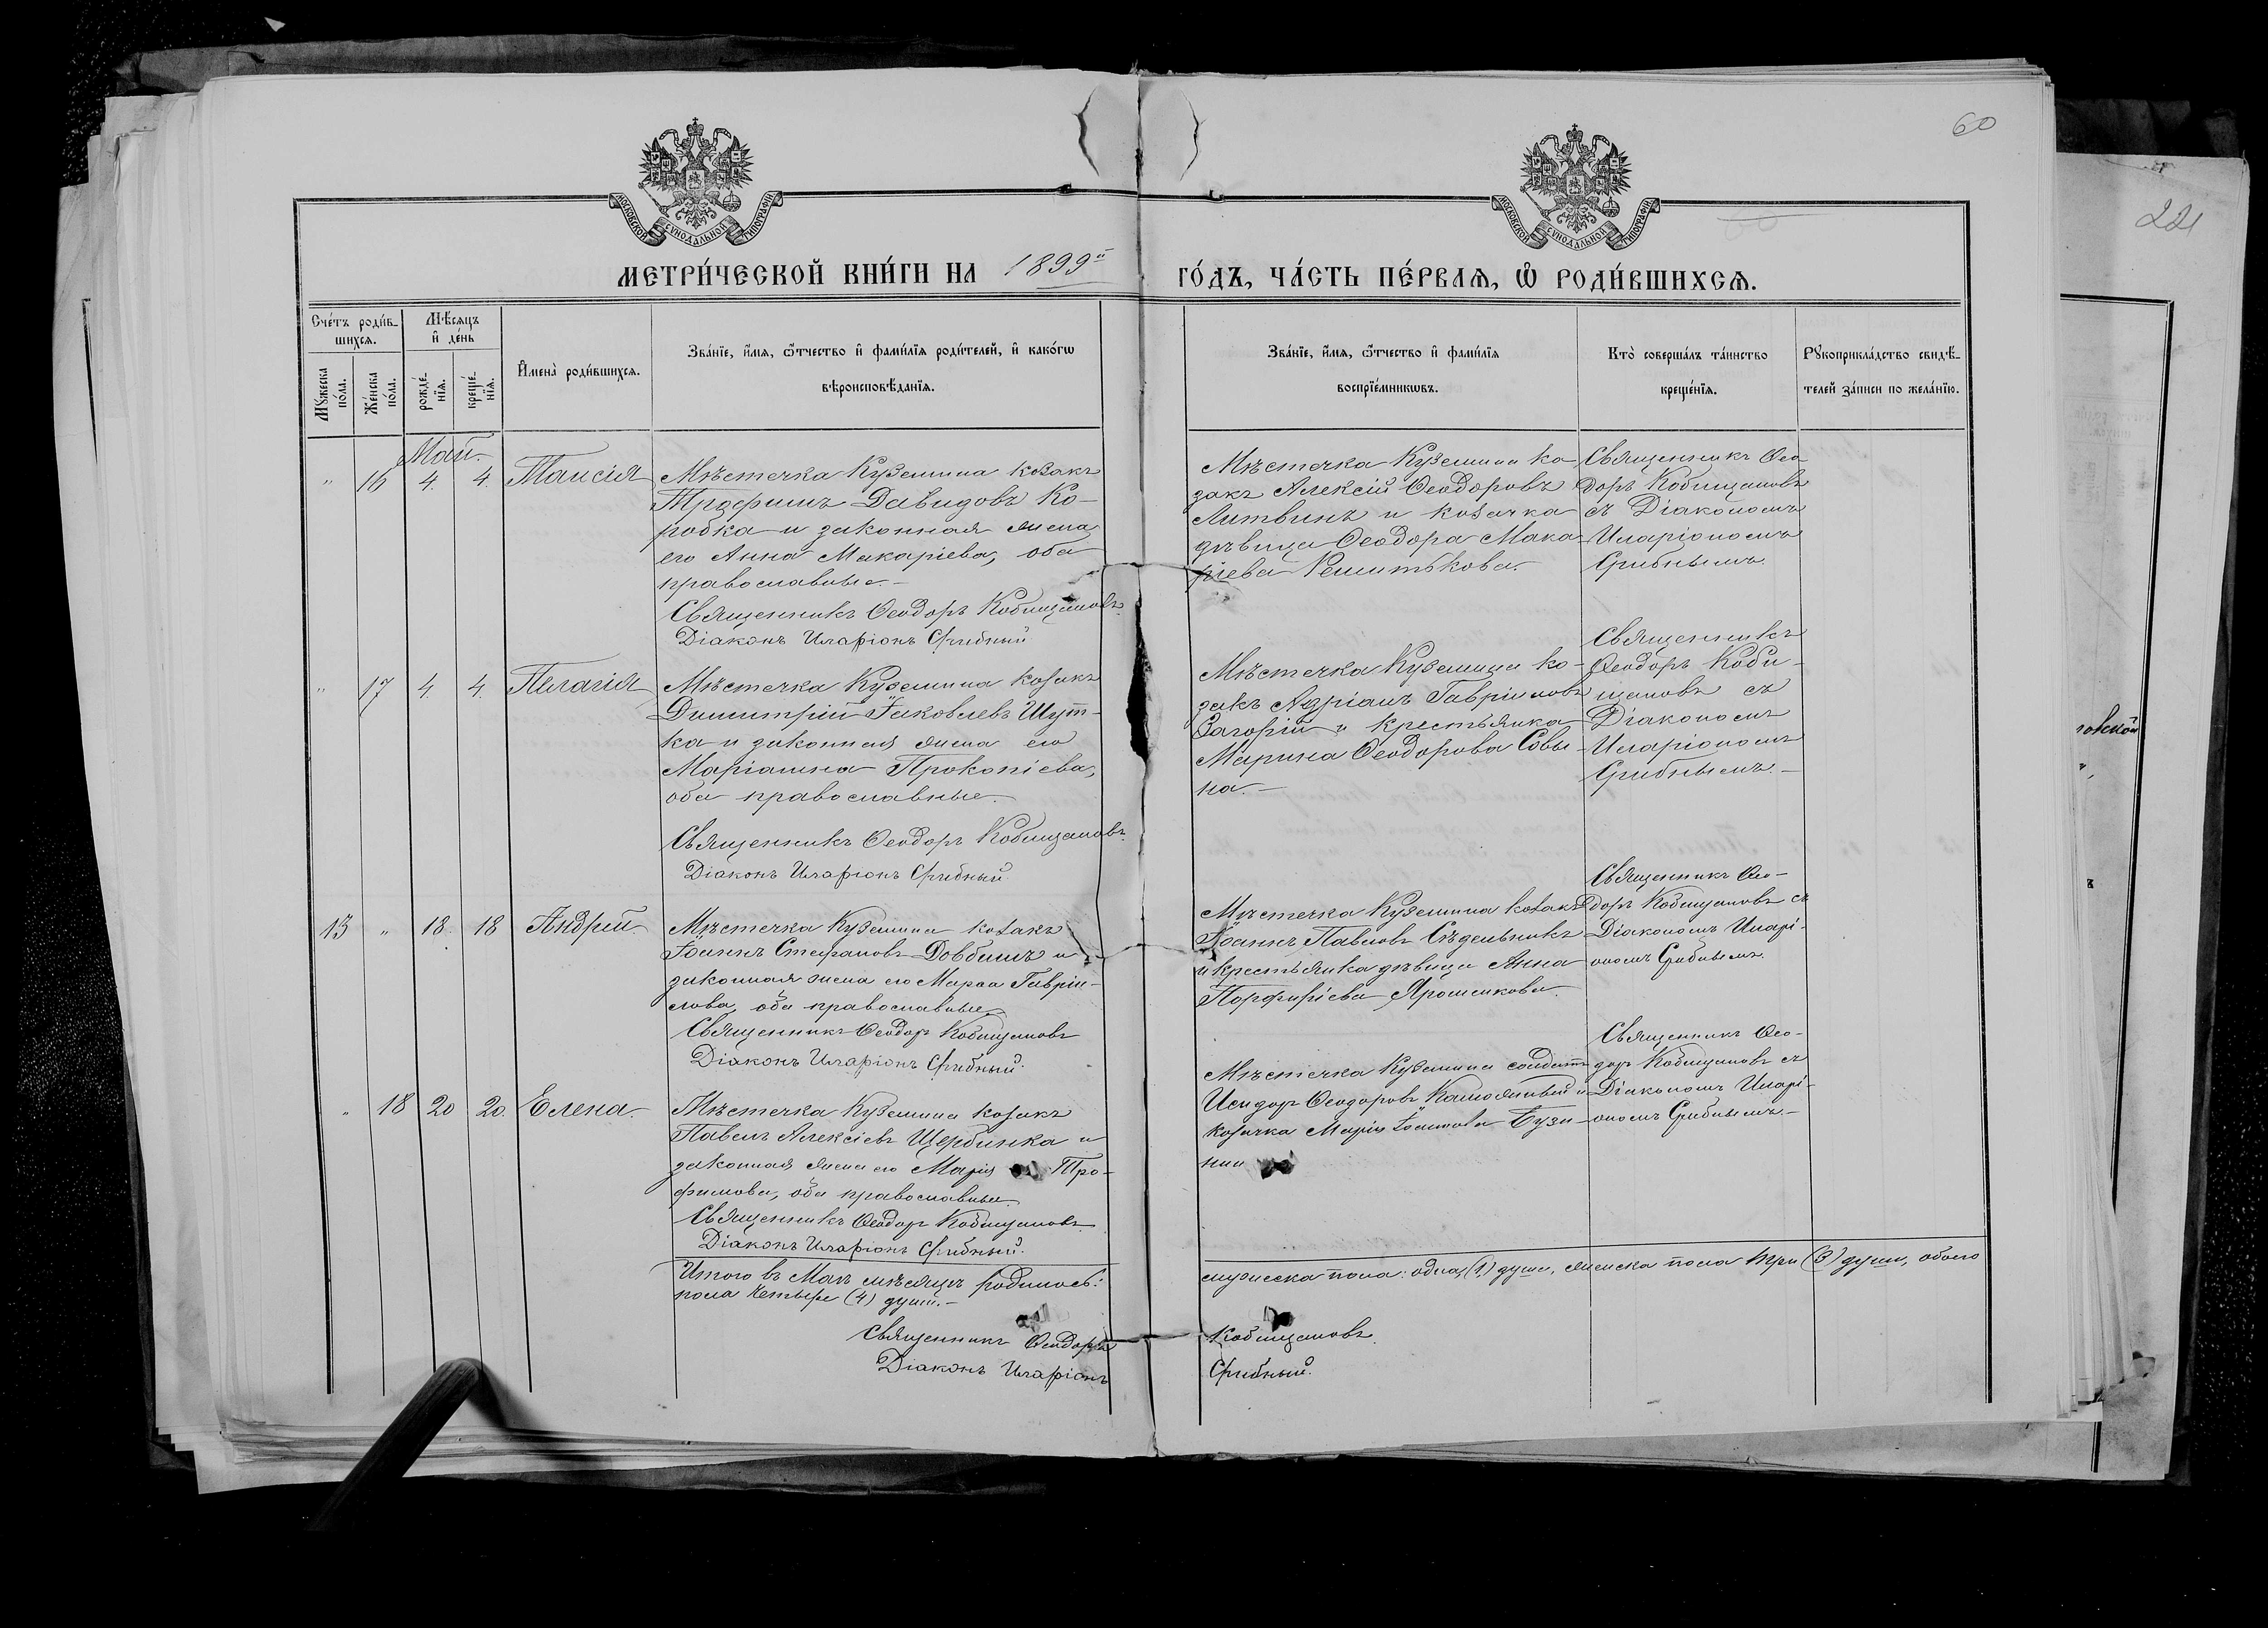 60
221
МОСКОВСКОЙ СУНОДАЛЬНОЙ ТИПОГРАФІИ
МОСКОВСКОЙ СУНОДАЛЬНОЙ ТИПОГРАФІИ
МЕТРИ́ЧЕСКОЙ КНИ́ГИ НА 1899й ГО́ДЪ, ЧА́СТЬ ПЕ́РВАЯ, Ѡ РОДИ́ВШИХСѦ.
Сче́тъ роди́в-
шихся.
Мѣ́сяцъ
и де́нь
Мꙋжеска по́ла.
Же́нска по́ла.
рожде́-нїя.
креще́-нїя.
Имена̀ роди́вшихся.
Зва́нїе, и́мя, ѻ҆́тчество и фами́лїя роди́телей, и како́гѡ
вѣроисповѣ́данїя.
Зва́нїе, и́мя, ѻ҆́тчество и фами́лїя
воспрїе́мникѡвъ.
Кто̀ соверша́лъ та́инство
креще́нїя.
Рꙋкоприкла́дство свидѣ́-
телей за́писи по жела́нїю.
Май.
" 16 4. 4. Таисія
Мѣстечка Куземина козакъ
Трофимъ Давидовъ Ко-
робка и законная жена
его Анна Макаріева, оба
православные.-
Священникъ Ѳеодоръ Кобищановъ
Діаконъ Иларіонъ Грибный
Мѣстечка Куземина ко-
закъ Алексій Ѳеодоровъ
Литвинъ и козачка
дѣвица Ѳеодора Мака-
ріева
Священникъ Ѳео-
доръ Кобищановъ
съ Діакономъ
Иларіономъ
Грибнымъ.
" 17 4. 4. Пелагія
Мѣстечка Куземина козакъ
Димитрій Іаковлевъ Шут-
ка и законная жена его
Маріамна Прокопіева,
оба православные.
Священникъ Ѳеодоръ Кобищановъ.
Діаконъ Иларіонъ Грибный
Мѣстечка Куземина ко-
закъ Адріанъ Гавріиловъ
Загорій и крестьянка
Марина Ѳеодорова Совы-
на.-
Священникъ
Ѳеодоръ Коби-
щановъ съ
Діакономъ
Иларіономъ
Грибнымъ.-
13 " 18. 18 Андрей.
Мѣстечка Куземина козакъ
Іоаннъ Стефановъ Довбишъ и
законная жена его Марѳа Гавріи-
лова, оба православные
Священникъ Ѳеодоръ Кобищановъ
Діаконъ Иларіонъ Грибный.
Мѣстечка Куземина козакъ
Іоаннъ Павловъ Сѣдельникъ
и крестьянка дѣвица Анна
Порфиріева Ярошенкова.
Священникъ Ѳео-
доръ Кобищановъ съ
Діакономъ Иларі-
ономъ Грибнымъ.
" 18 20 20. Елена.
Мѣстечка Куземина козакъ
Павелъ Алексіевъ Щербинка и
законная жена его Марія Тро-
фимова, оба православные
Священникъ Ѳеодоръ Кобищановъ
Діаконъ Иларіонъ Грибный.
Мѣстечка Куземина солдатъ
Исидоръ Ѳеодоровъ и
козачка Марія Іоаннова
Священникъ Ѳео-
доръ Кобищановъ съ
Діакономъ Иларі-
ономъ Грибнымъ.-
Итого въ Маѣ мѣсяцѣ родилось: мужеска пола: одна (1) душа, женска пола три (3) души, обоего
пола четыре (4) души.-
Священникъ Ѳеодоръ Кобищановъ.
Діаконъ Иларіонъ Грибный.